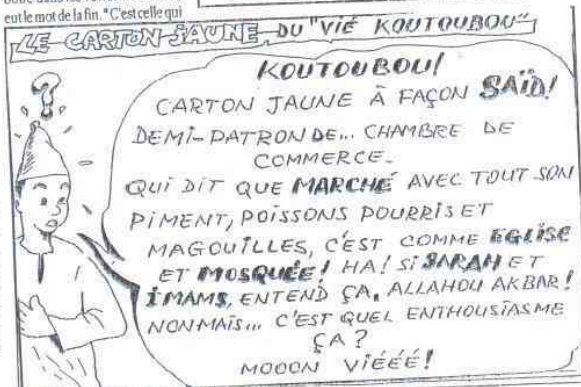 eut le mot de la fin. "C'est celle qui
LE CARTON JAUNE DU "VIÉ KOUTOUBOU"
?
KOUTOUBOU!
CARTON JAUNE À FAÇON SAÏD!
DEMI-PATRON DE... CHAMBRE DE
COMMERCE.
QUI DIT QUE MARCHÉ AVEC TOUT SON
PIMENT, POISSONS POURRIS ET
MAGOUILLES, C'EST COMME EGLISE
ET MOSQUÉE! HA! SI SARAH ET
IMAMS, ENTEND ÇA, ALLAHOU AKBAR!
NON MAÏS... C'EST QUEL ENTHOUSIASME
ÇA?
MOOON VIÉÉÉ!